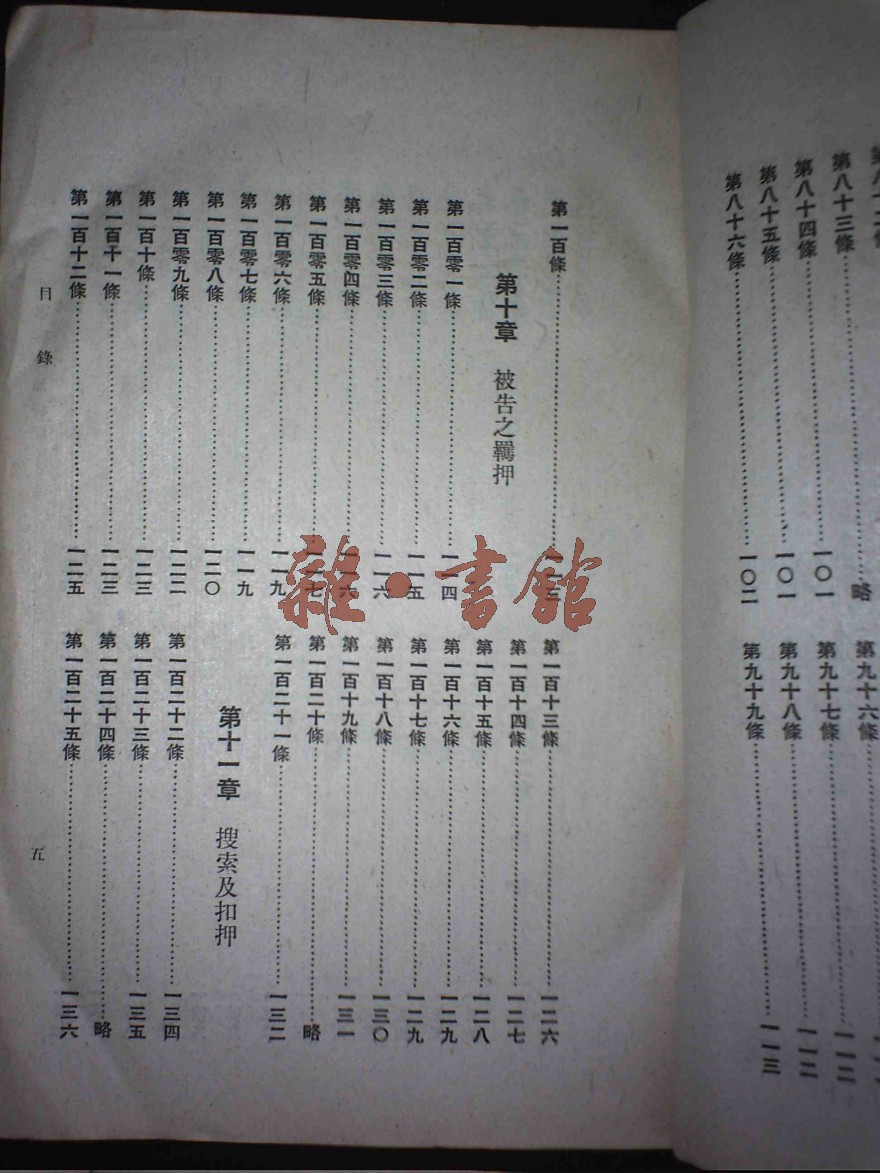 第八十三條……略
第八十四條……一〇一
第八十五條……一〇一
第八十六條……一〇二
第九十六條
第九十七條……一一二
第九十八條……一一二
第九十九條……一一三
第一百條……
第十章 被告之羈押
第一百零一條……一一四
第一百零二條……一一五
第一百零三條……一一六
第一百零四條……一一六
第一百零五條……一一七
第一百零六條……一一九
第一百零七條……一一九
第一百零八條……一二〇
第一百零九條……一二二
第一百十條……一二三
第一百十一條……一二三
第一百十二條……一二五
第一百十三條……一二六
第一百十四條……一二七
第一百十五條……一二八
第一百十六條……一二九
第一百十七條……一二九
第一百十八條……一三〇
第一百十九條……一三一
第一百二十條……略
第一百二十一條……一三二
第十一章 搜索及扣押
第一百二十二條……一三四
第一百二十三條……一三五
第一百二十四條……略
第一百二十五條……一三六
目錄
五
雜·書館